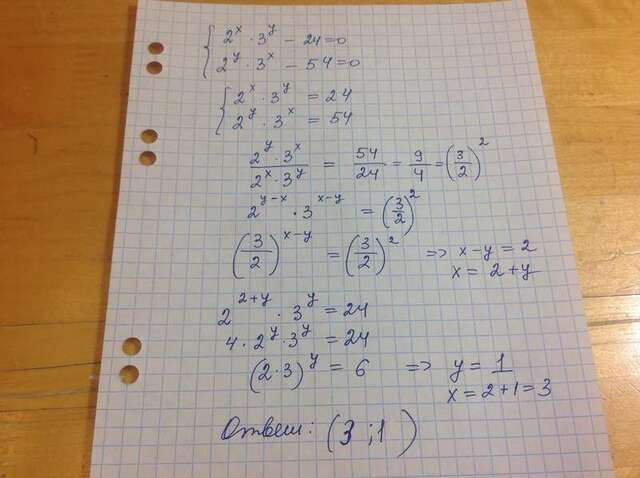 2^x · 3^y − 24 = 0
2^y · 3^x − 54 = 0
2^x · 3^y = 24
2^y · 3^x = 54
(2^y · 3^x)/(2^x · 3^y) = 54/24 = 9/4 = (3/2)^2
2^(y−x) · 3^(x−y) = (3/2)^2
(3/2)^(x−y) = (3/2)^2 => x−y = 2
x = 2+y
2^(2+y) · 3^y = 24
4 · 2^y · 3^y = 24
(2·3)^y = 6 => y = 1
x = 2+1 = 3
Ответ: (3 ; 1)